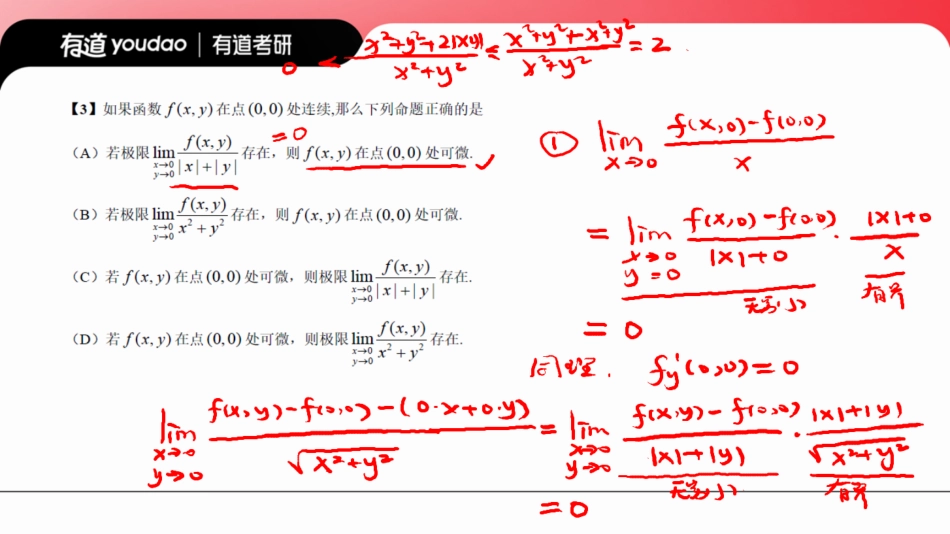 有道 youdao | 有道考研
0 < (x²+y²+2|xy|)/(x²+y²) ≤ (x²+y²+x²+y²)/(x²+y²) = 2
【3】如果函数 f(x, y) 在点 (0, 0) 处连续,那么下列命题正确的是
(A) 若极限 lim_{x→0, y→0} f(x, y)/(|x|+|y|) 存在，则 f(x, y) 在点 (0, 0) 处可微. ✓
=0
(B) 若极限 lim_{x→0, y→0} f(x, y)/(x²+y²) 存在，则 f(x, y) 在点 (0, 0) 处可微.
(C) 若 f(x, y) 在点 (0, 0) 处可微，则极限 lim_{x→0, y→0} f(x, y)/(|x|+|y|) 存在.
(D) 若 f(x, y) 在点 (0, 0) 处可微，则极限 lim_{x→0, y→0} f(x, y)/(x²+y²) 存在.
① lim_{x→0} (f(x,0)-f(0,0))/x
= lim_{x→0, y=0} (f(x,0)-f(0,0))/(|x|+0) · (|x|+0)/x
无穷小 有界
= 0
同理. fy'(0,0)=0
lim_{x→0, y→0} (f(x,y)-f(0,0)-(0·x+0·y))/√(x²+y²) = lim_{x→0, y→0} (f(x,y)-f(0,0))/(|x|+|y|) · (|x|+|y|)/√(x²+y²)
无穷小 有界
=0